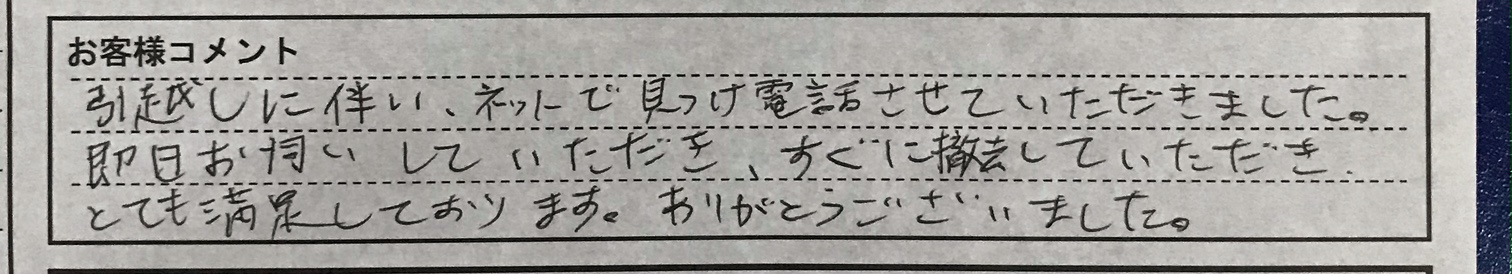 お客様コメント
引越しに伴い、ネットで見つけ電話させていただきました。
即日お伺いしていただき、すぐに撤去していただき
とても満足しております。ありがとうございました。